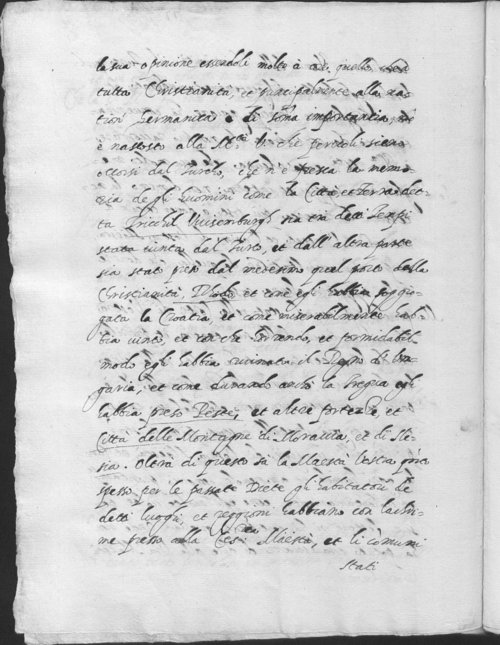 la sua opinione essendoli molto à cuore quello
tutta Christianità, et principalmente alla na-
tion Germanica è di soma importantia,
è nascosto alla M.tà tri che pericoli sieno
occorsi dal Turcho, che n'è fresca la memo-
ria degli huomini come la Città, et Terra det-
ta Griechil Weisenburgh sia ità detti
stata vinta dal Turco, et dall'altra parte
sia stato preso dal medesimo quel porto della
Christianità, Rhodo et come egli habbia soggio-
gata la Croatia et come miserabilmente hab-
bia vinto et con che horrendo, et formidabil
modo egli habbia ruinato il Regno di Un-
garia, et come durando anchi la tregua egli
habbia preso Pesti, et altre fortezze et
Città delle Montagne di Moravia, et di Sle-
sia. Oltra di questo sà la Maestà Vostra
spesso per le passate Diete gli habitatori de
detti luoghi, et reggioni habbiano con lachri-
me presso alla Ces.rea Maestà, et li comuni
Stati